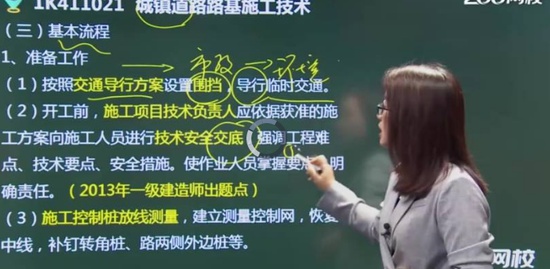 1K411021 城镇道路路基施工技术
网校
（三）基本流程
1、准备工作
（1）按照交通导行方案设置围挡，导行临时交通。
（2）开工前，施工项目技术负责人应依据获准的施
工方案向施工人员进行技术安全交底，强调工程难
点、技术要点、安全措施。使作业人员掌握要点，明
确责任。（2013年一级建造师出题点）
（3）施工控制桩放线测量，建立测量控制网，恢复
中线，补钉转角桩、路两侧外边桩等。
网校